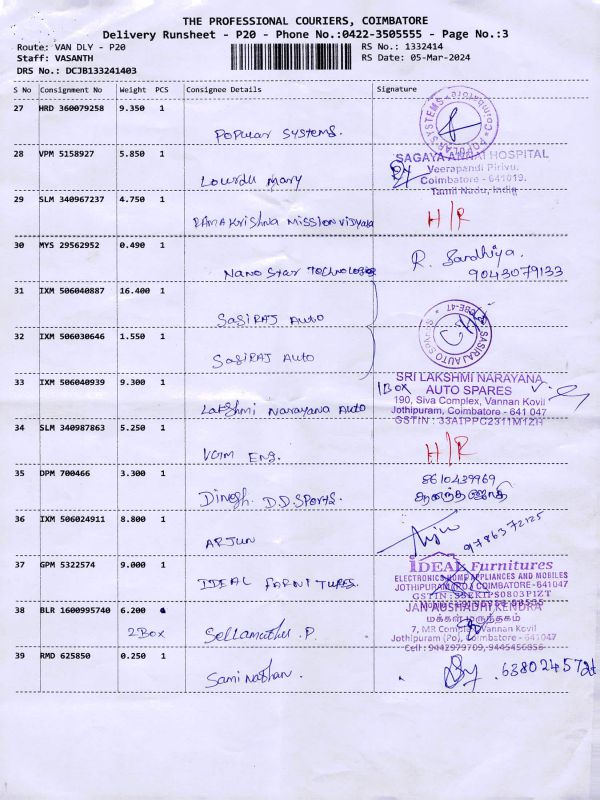 THE PROFESSIONAL COURIERS, COIMBATORE
Delivery Runsheet - P20 - Phone No.:0422-3505555 - Page No.:3
Route: VAN DLY - P20 RS No.: 1332414
Staff: VASANTH RS Date: 05-Mar-2024
DRS No.: DCJB133241403
S No Consignment No Weight PCS Consignee Details Signature
27 HRD 360079258 9.350 1
Popular Systems.
POPULAR SYSTEMS Coimbatore
28 VPM 5158927 5.850 1
Lourdu Mary
SAGAYA ANNAI HOSPITAL
Veerapandi Pirivu,
Coimbatore - 641019.
Tamil Nadu, India
29 SLM 340967237 4.750 1
Ramakrishna Mission Vidyalaya
H/R
30 MYS 29562952 0.490 1
Nano Star Technologies
R. Sandhiya.
9043079133
31 IXM 506040887 16.400 1
Sasiraj Auto
32 IXM 506030646 1.550 1
Sasiraj Auto
SASIRAJ AUTO
33 IXM 506040939 9.300 1
Lakshmi Narayana Auto
1Box
SRI LAKSHMI NARAYANA
AUTO SPARES
190, Siva Complex, Vannan Kovil
Jothipuram, Coimbatore - 641 047
GSTIN : 33AIPPC2311M1ZH
34 SLM 340987863 5.250 1
Eng.
H/R
35 DPM 700466 3.300 1
Dinesh. D.D. Sports.
8610439969
36 IXM 506024911 8.800 1
Arjun
9786372125
37 GPM 5322574 9.000 1
IDEAL FARNITURES.
IDEAL Furnitures
ELECTRONICS HOME APPLIANCES AND MOBILES
JOTHIPURAM (PO) COIMBATORE-641047
38 BLR 1600995740 6.200
2Box
Sellamuthu .P.
JAN AUSHADHI KENDRA
மக்கள் மருந்தகம்
7, MR Complex, Vannan Kovil
Jothipuram (Po), Coimbatore - 641047
Cell : 9442979709, 9445456856
39 RMD 625850 0.250 1
Saminathan.